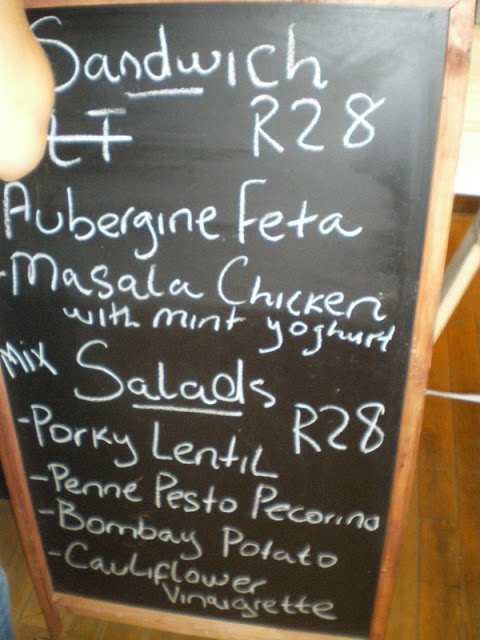 Sandwich
R28
Aubergine Feta
-Masala Chicken
with mint yoghurt
Mix Salads
R28
-Porky Lentil
-Penne Pesto Pecorino
-Bombay Potato
-Cauliflower
Vinaigrette